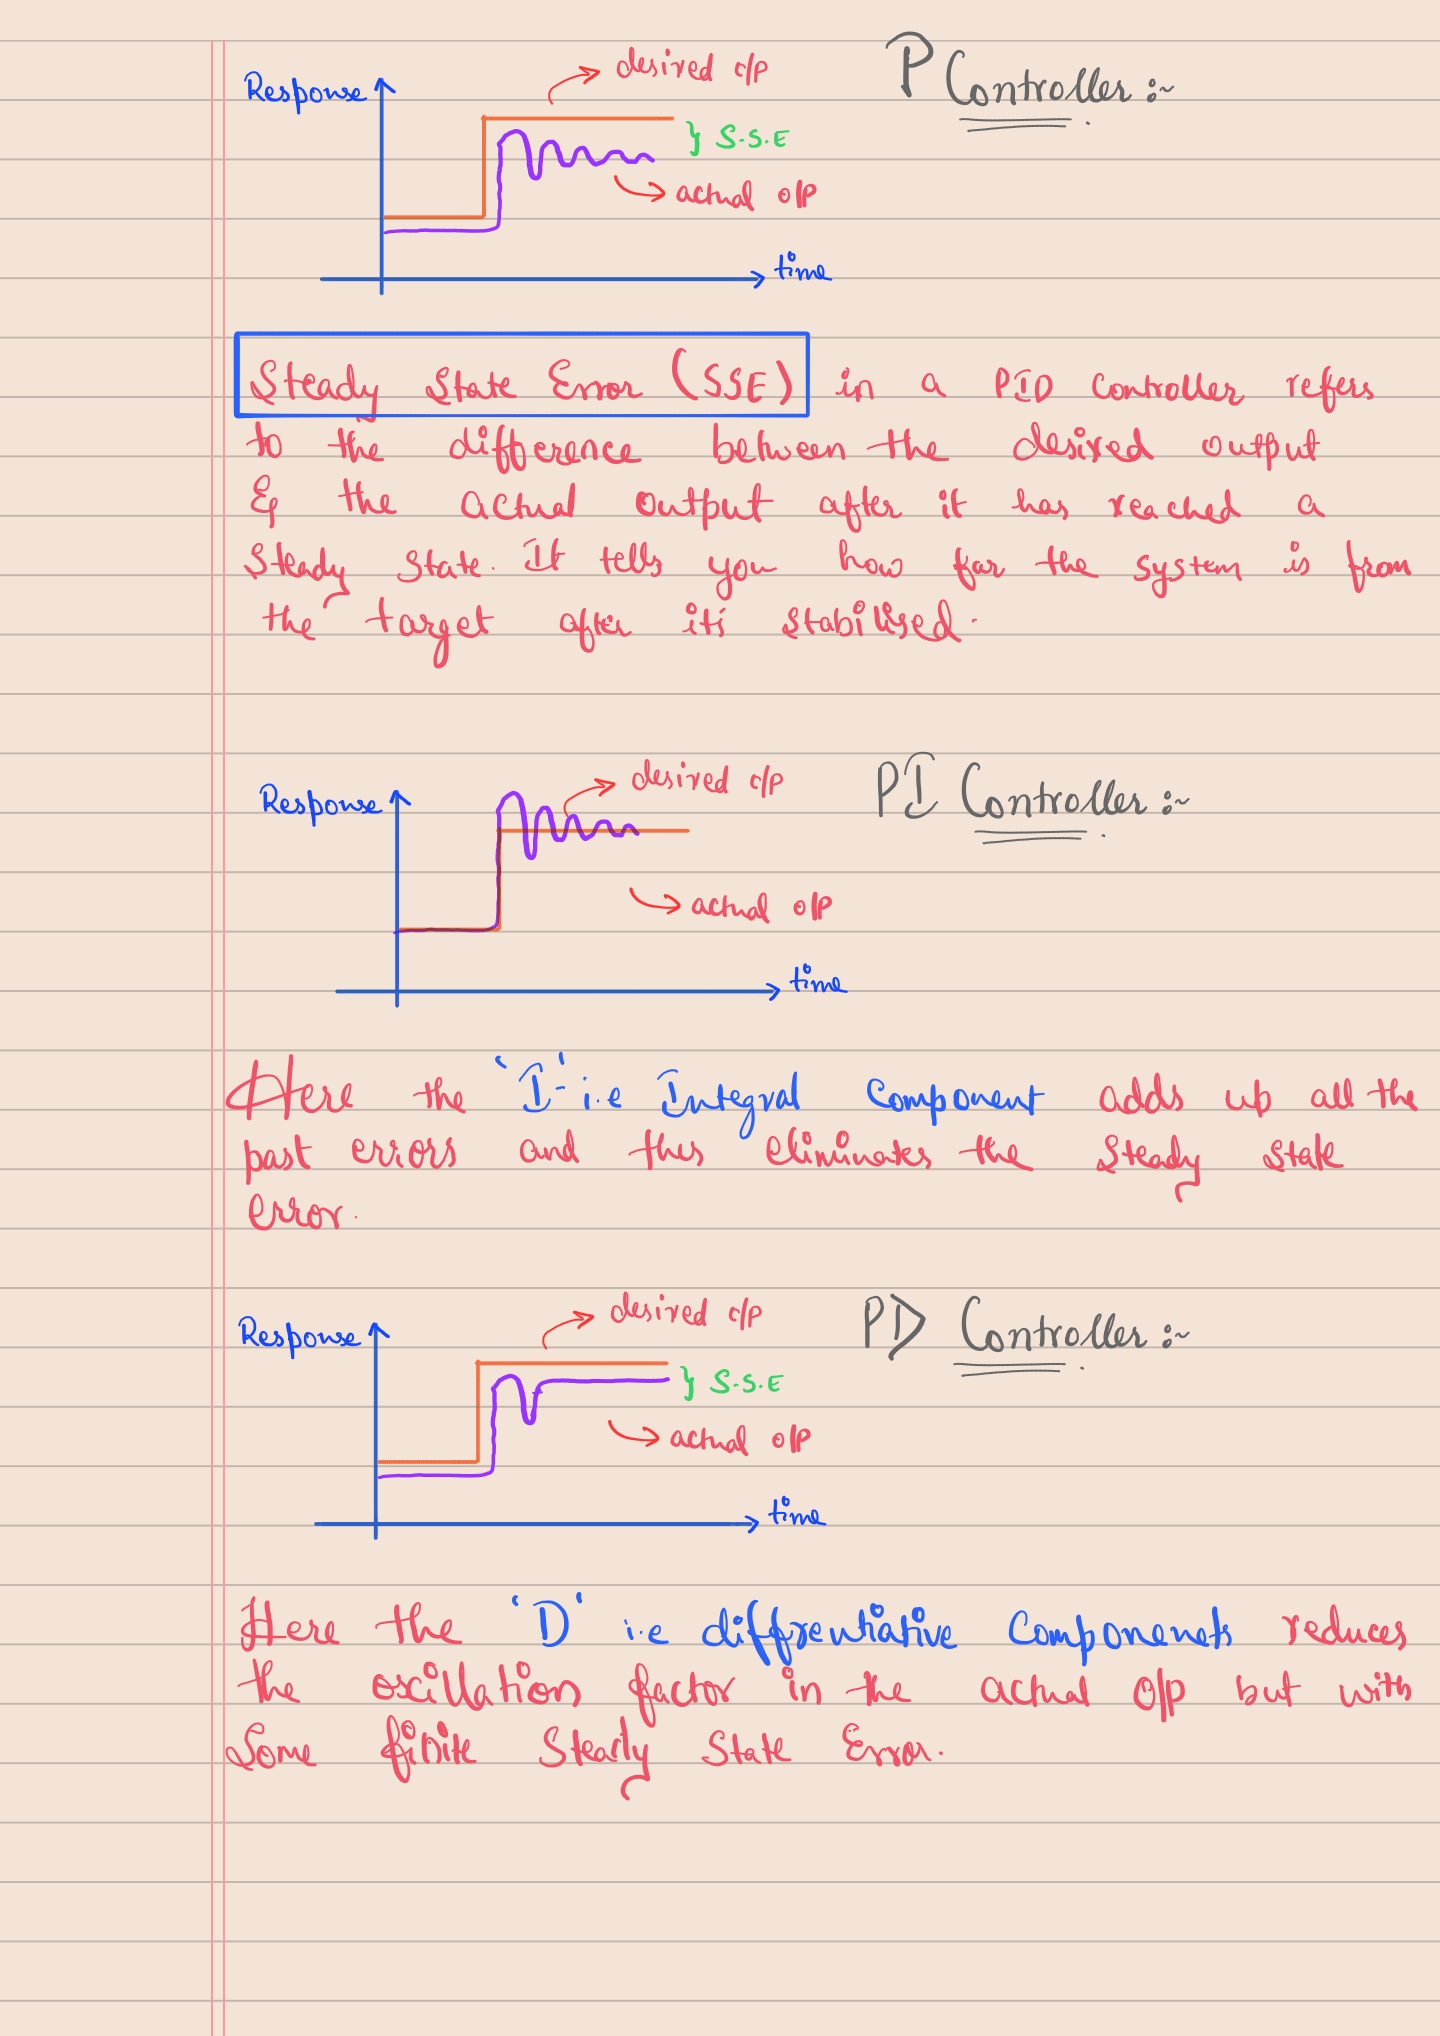 P Controller :~
Response
desired o/p
S.S.E
actual o/p
time
Steady State Error (SSE) in a PID Controller refers
to the difference between the desired output
& the actual output after it has reached a
Steady State. It tells you how far the system is from
the target after it's stabilised.
PI Controller :~
Response
desired o/p
actual o/p
time
Here the 'I' i.e Integral Component adds up all the
past errors and this eliminates the Steady State
error.
PD Controller :~
Response
desired o/p
S.S.E
actual o/p
time
Here the 'D' i.e diffrentiative Componenets reduces
the oscillation factor in the actual o/p but with
Some finite Steady State Error.